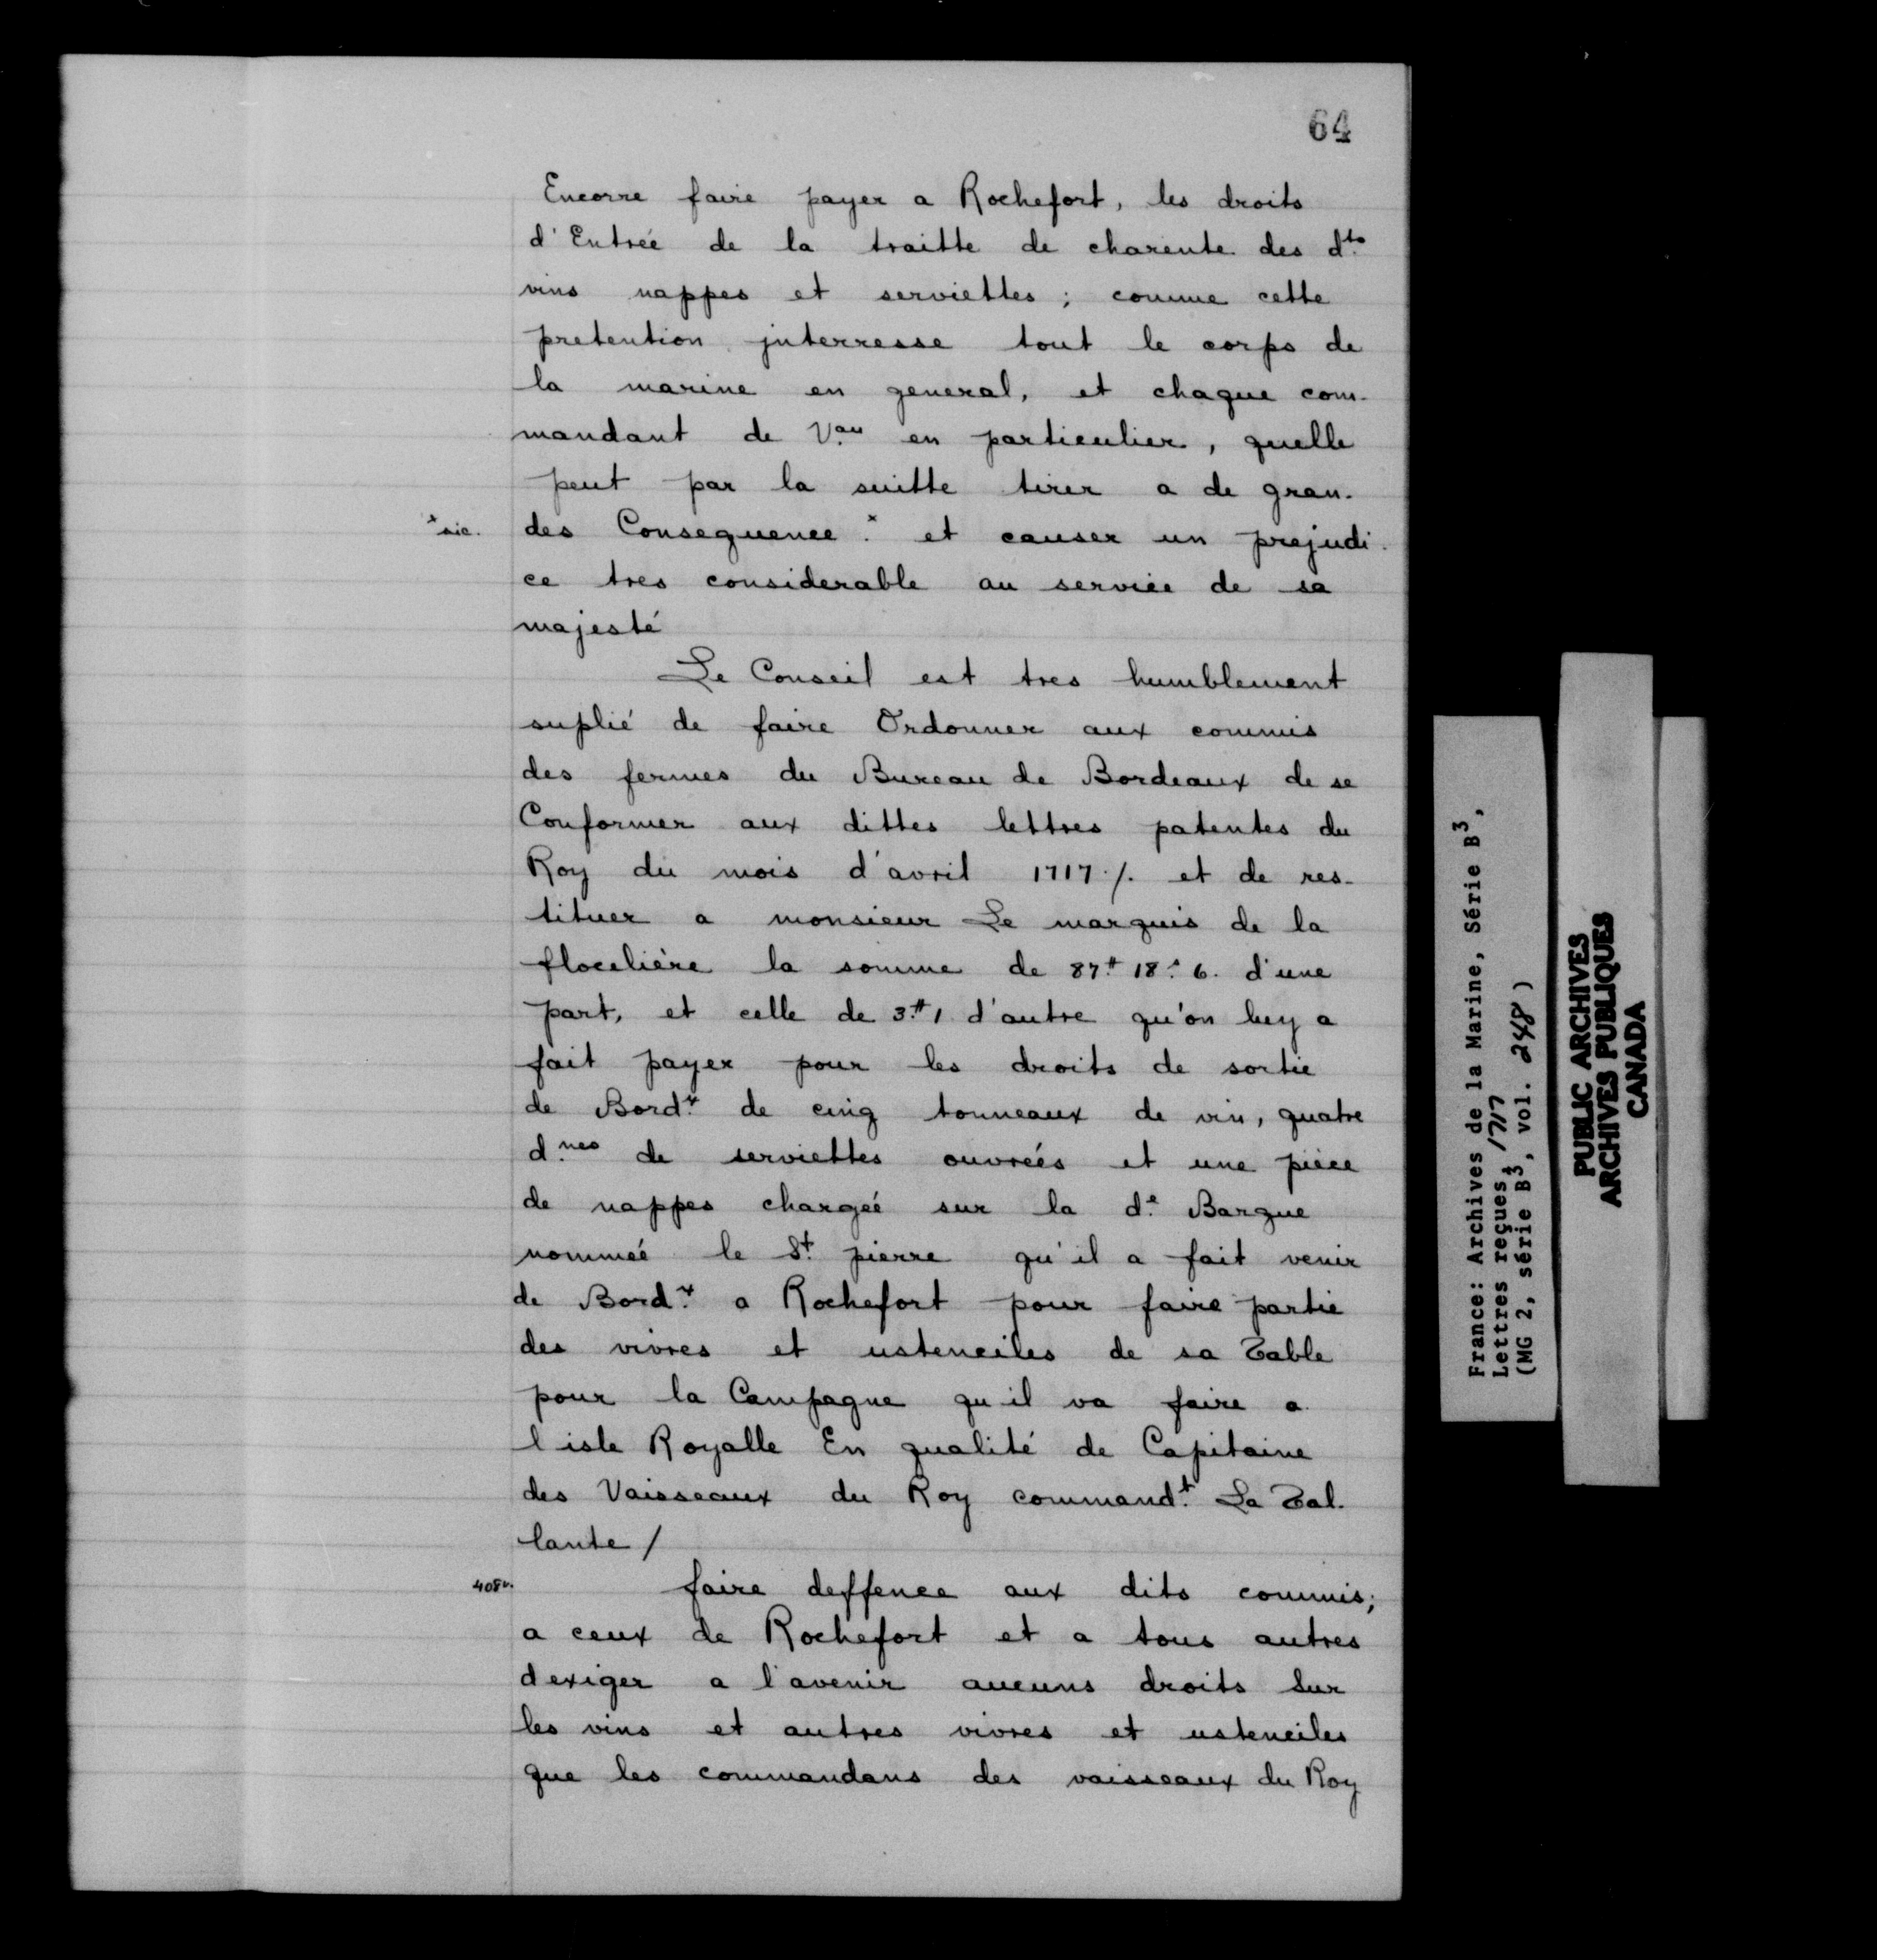 64
Encorre faire payer a Rochefort, les droits
d'Entrée de la traitte de charente des dts
vins nappes et serviettes ; comme cette
pretention jnterresse tout le corps de
la marine en general, et chaque com-
mandant de Vau en particulier, quelle
peut par la suitte tirer a de gran-
xsic.
des Consequence.x et causer un prejudi-
ce tres considerable au service de sa
majesté
Le Conseil est tres humblement
suplié de faire Ordonner aux commis
des fermes du Bureau de Bordeaux de se
Conformer aux dittes lettres patentes du
Roy du mois d'avril 1717./. et de res-
tituer a monsieur Le marquis de la
flocelière la somme de 87# 18s 6. d'une
part, et celle de 3# 1 d'autre qu'on luy a
fait payer pour les droits de sortie
de Bordx de cinq tonneaux de vin, quatre
d.nes de serviettes ouvreés et une piece
de nappes chargeé sur la d.e Barque
nommeé le St. pierre qu'il a fait venir
de Bordx a Rochefort pour faire partie
des vivres et ustenciles de sa Table
pour la Campagne qu il va faire a
l isle Royalle En qualité de Capitaine
des Vaisseaux du Roy command.t La Tal-
lante /
408v.
faire deffence aux dits commis;
a ceux de Rochefort et a tous autres
dexiger a l'avenir aucuns droits Sur
les vins et autres vivres et ustenciles
que les commandans des vaisseaux du Roy
France: Archives de la Marine, Série B3,
Lettres reçues, 1717
(MG 2, série B3, vol. 248)
PUBLIC ARCHIVES
ARCHIVES PUBLIQUES
CANADA